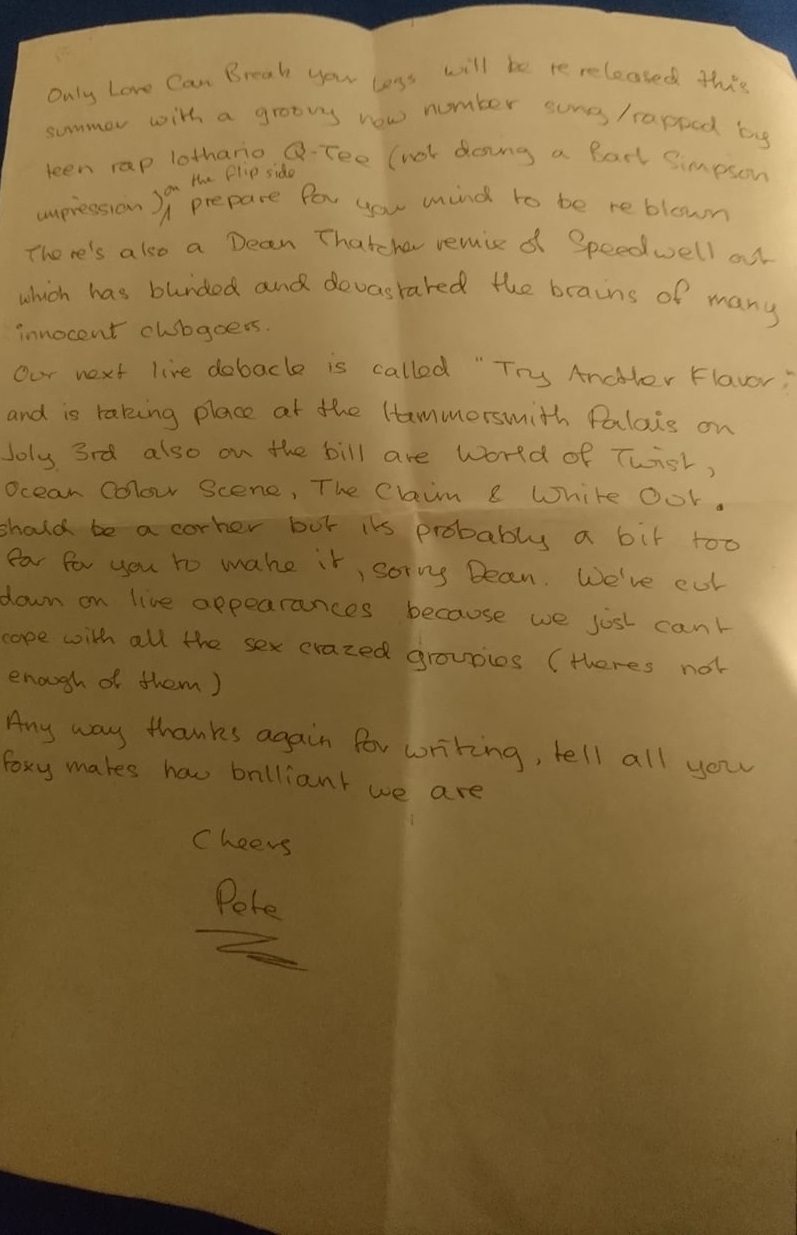 Only Love Can Break your Legs will be re released this
summer with a groovy new number sung/rapped by
teen rap lothario Q-Tee (not doing a Bart Simpson
on the flip side
impression), prepare for you mind to be re blown
There's also a Dean Thatcher remix of Speedwell out
which has blinded and devastated the brains of many
innocent clubgoers.
Our next live debacle is called "Try Another Flavor"
and is taking place at the Hammersmith Palais on
July 3rd also on the bill are World of Twist,
Ocean Colour Scene, The Claim & White Out.
should be a corker but its probably a bit too
far for you to make it, sorry Dean. We've cut
down on live appearances because we just cant
cope with all the sex crazed groupies (theres not
enough of them)
Any way thanks again for writing, tell all your
foxy mates how brilliant we are
Cheers
Pete